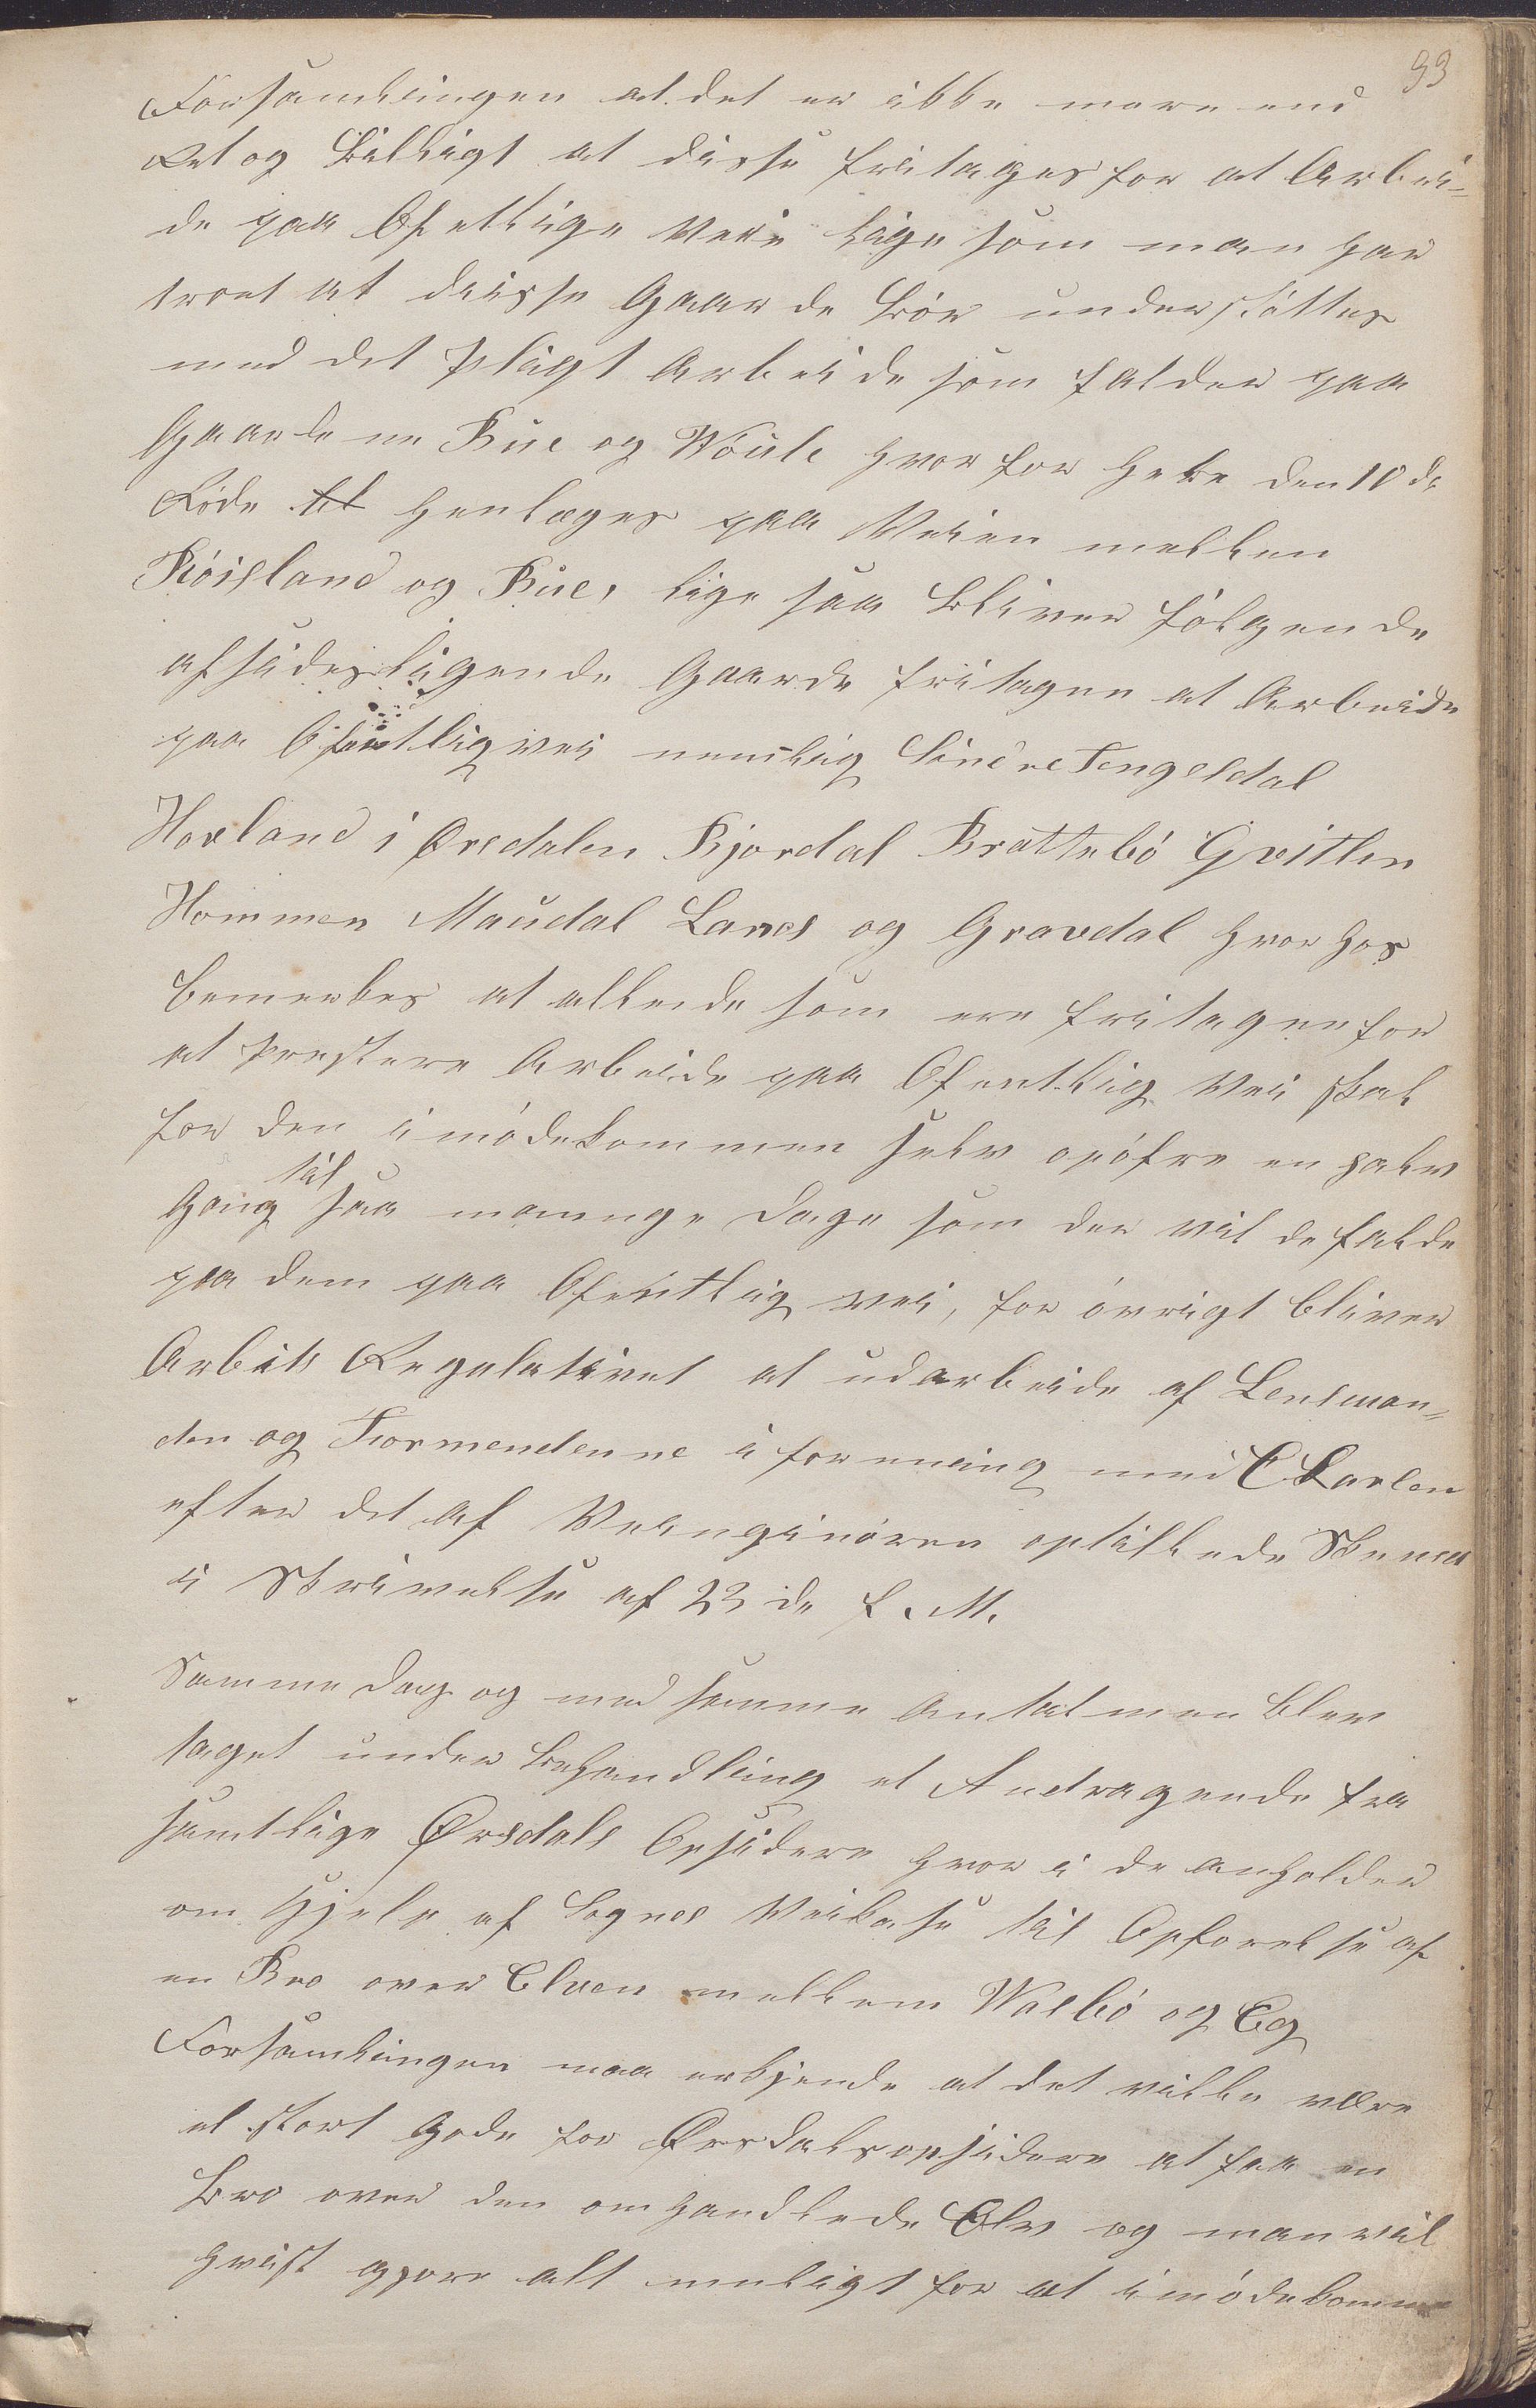 93
Forsamlingen at det er ikke mere end
Ret og billigt at disse fritages for at Arbei-
de paa Ofetlige Veie lige som man har
troet at disse Gaarde bør understøttes
med det Pligt Arbeide som falder paa
Gaardene Bue og Wøule hvorfor hele den 10de
Rode henlægges paa Veien mellen
Røisland og Bue, lige saa bliver følgende
afsidesligende Gaarde fritagen at Arbeide
paa Ofentlig vei nemlig Tengesdal
Hovland i Ørsdalen Bjordal Brattebø Gvitlen
Hommen Maudal Lands og Gravdal hvorhos
bemerkes at alle de som ere fritagen for
at prestere Arbeide paa Ofentlig Vei skal
for den imødekommen selv opofre en halv
Gang til saa mannge Dage som der vil de falde
paa dem paa Ofentlig vei, for øvrigt bliver
Arbeits Regulativet at udarbeide af Lensman-
den og Formendenne i forening med E Karlsen
efter det af Veiingiøren opstillede Skema
i Skrivelse af 23de f. M.
Samme Dag og med samme Antal men blev
taget under behandling et Andragende fra
samtlige Ørsdals Opsidere hvor i de anholder
om Hjelp af Sognes Veikasse til Opførelse af
en Bro over Elven mellem Walbø og Eg
Forsamlingen maa erkjende at det vilde være
et stort Gode for Ørsdalsopsidere at faa en
Bro over den omhandlede Elv og man vil
hvist gjøre alt muligt for at imødekomme